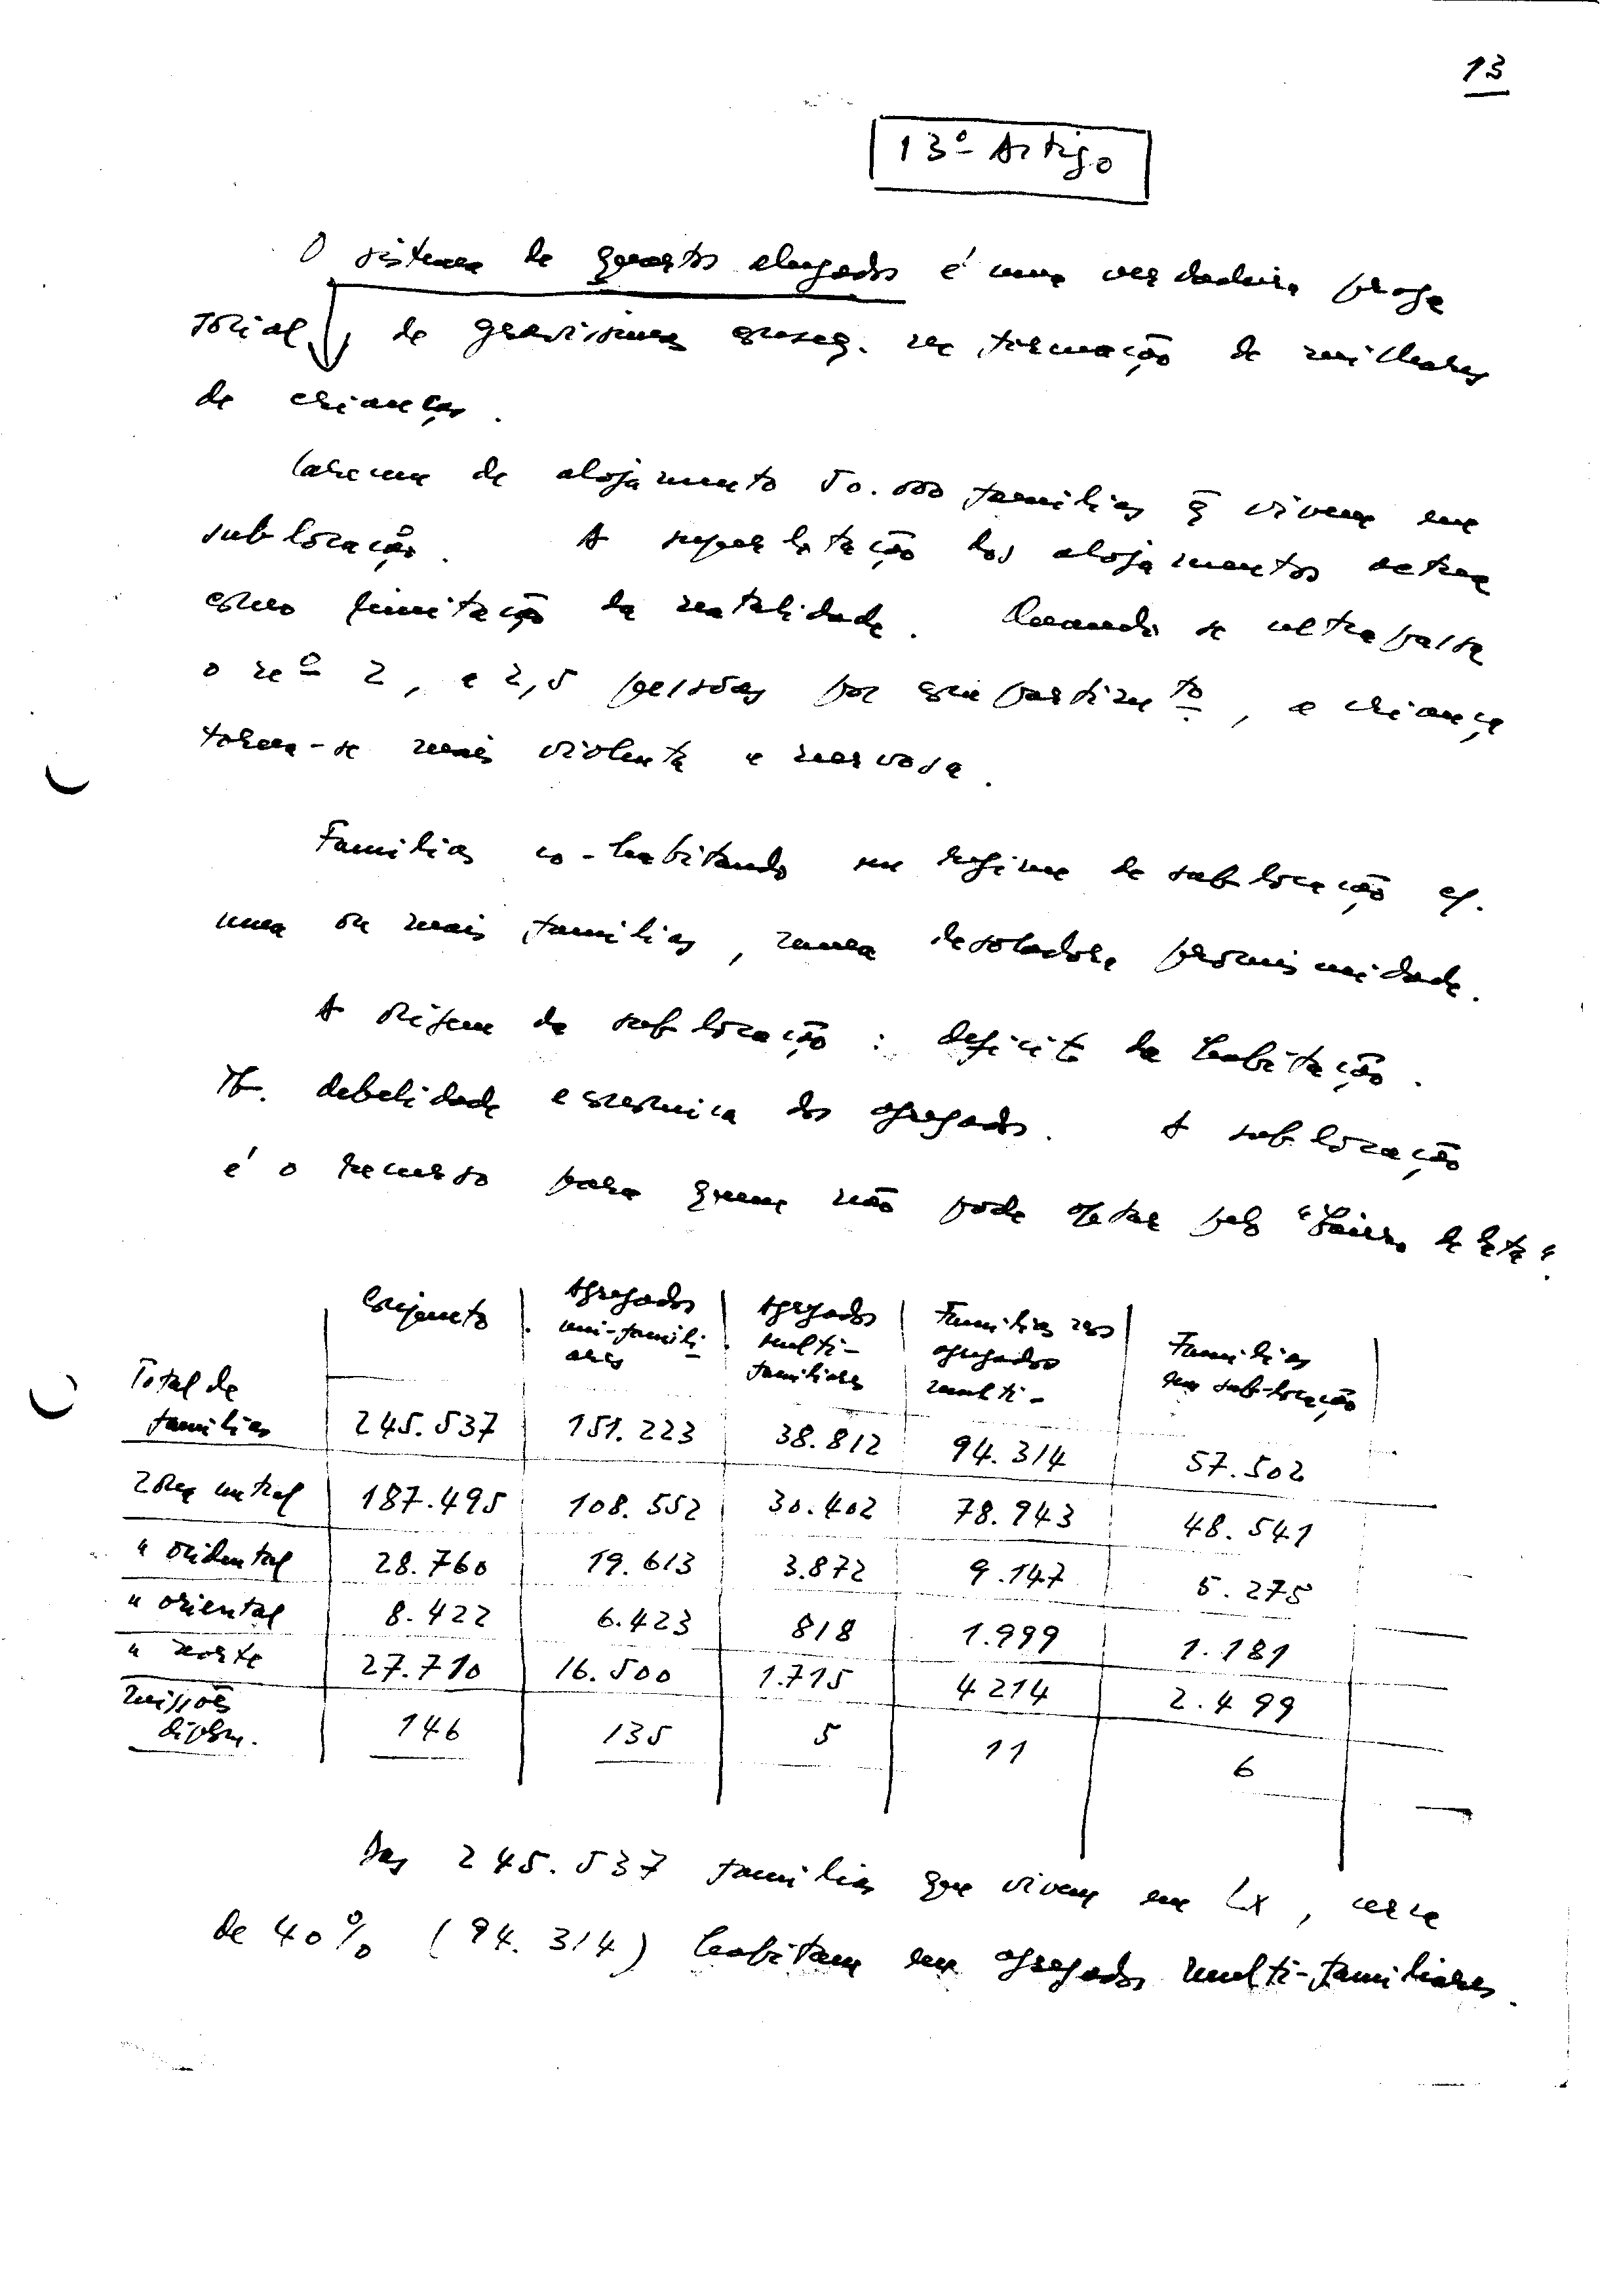 13
13º Artigo
O sistema de quartos alugados é uma verdadeira praga
social, de gravíssimas conseq. na formação de milhares
de crianças.
Carecem de alojamento 50.000 famílias q̄ vivem em
sublocação. A superlotação dos alojamentos actua
como limitação da natalidade. Quando se ultrapassa
o nº 2, a 2,5 pessoas por compartimtº, a criança
torna-se mais violenta e nervosa.
Famílias co-habitando em regime de sublocação c/.
uma ou mais famílias, numa desoladora promiscuidade.
A origem da sublocação: deficit da habitação.
Tb. debelidade económica dos agregados. A sublocação
é o recurso para quem não pode optar pelo "bairro de lata".
Conjunto Agregados uni-famili- ares Agregados multi- familiares Famílias nos agregados multi- Famílias em sub-locação
Total de
famílias 245.537 151.223 38.812 94.314 57.502
Zona central 187.495 108.552 30.402 78.943 48.541
" ocidental 28.760 19.613 3.872 9.147 5.275
" oriental 8.422 6.423 818 1.999 1.181
" norte 27.710 16.500 1.715 4214 2.499
missões
diplom. 146 135 5 11 6
Das 245.537 famílias que vivem em Lx, cerca
de 40% (94.314) habitam em agregados multi-familiares.